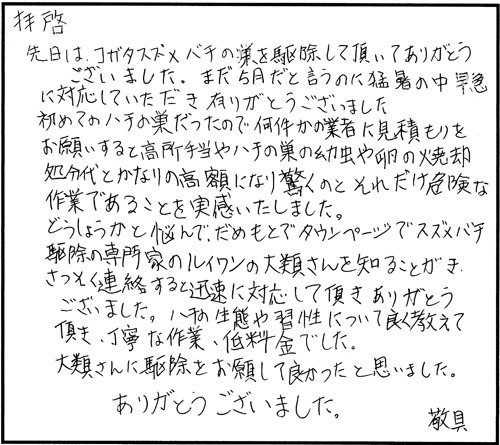 拝啓
先日は、コガタスズメバチの巣を駆除して頂いてありがとう
ございました。まだ5月だと言うのに猛暑の中早急
に対応していただき有りがとうございました
初めてのハチの巣だったので何件かの業者に見積もりを
お願いすると高所手当やハチの巣の幼虫や卵の焼却
処分代とかなりの高額になり驚くのとそれだけ危険な
作業であることを実感いたしました。
どうしょうかと悩んで、だめもとでタウンページでスズメバチ
駆除の専門家のルイワンの大類さんを知ることができ、
さっそく連絡すると迅速に対応して頂きありがとう
ございました。ハチの生態や習性について良く教えて
頂き、丁寧な作業、低料金でした。
大類さんに駆除をお願して良かったと思いました。
ありがとうございました。
敬具